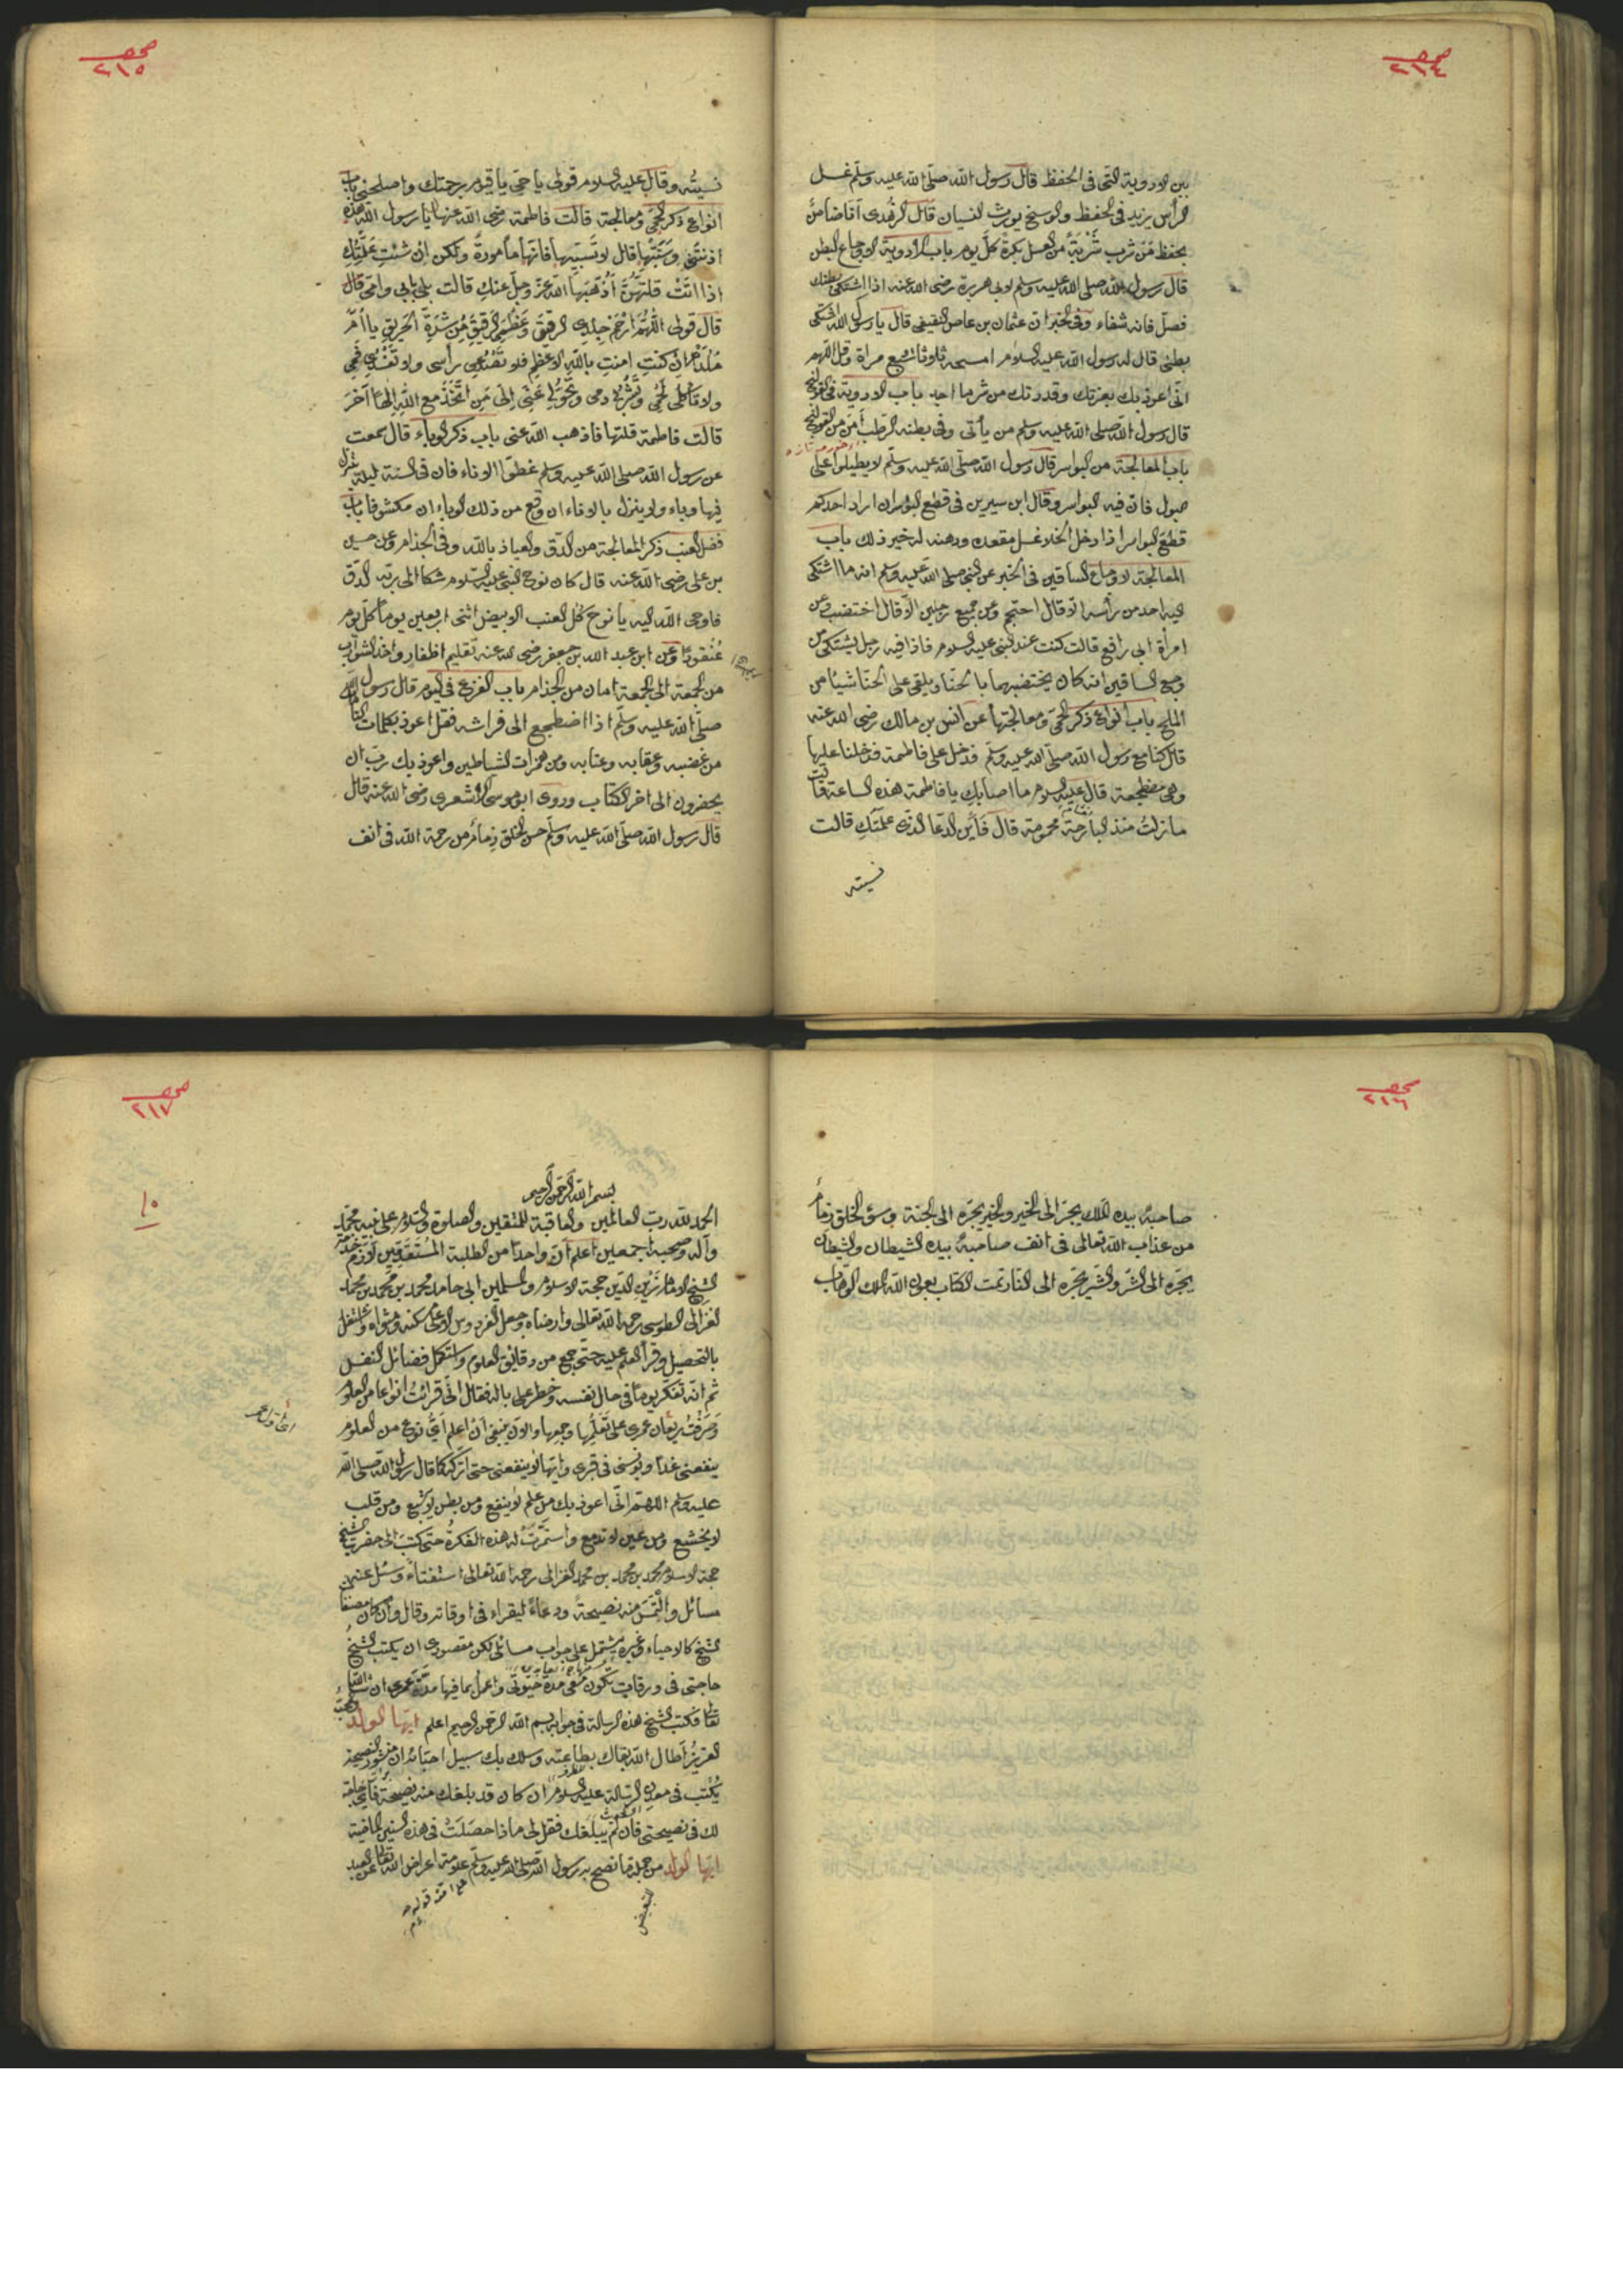 صحـ ٢١٤
بين الادوية التى فى الحفظ قال رسول الله صلى الله عليه وسلم غسل
الرأس يزيد فى الحفظ والوسخ يورث النسيان قال الزهدى
يحفظ من شرب شربة من العسل بكرة كل يوم باب الادوية لاوجاع البطن
قال رسول الله صلى الله عليه وسلم لابى هريرة رضى الله عنه اذا اشتكى بطنك
فصل فانه شفاء وفى الخبر ان عثمان بن عاص الثقيفى قال يا رسول الله اشتكى
بطنى قال له رسول الله عليه السلام امسحه ثلاثا سبع مراة وقل اللهم
انى اعوذ بك بعزتك وقدرتك من شر ما اجد باب الادوية فى القولنج
قال رسول الله صلى الله عليه وسلم من يأتى وفى بطنه الرطب أمن من القولنج
باب المعالجة من البواسر قال رسول الله صلى الله عليه وسلم لا يطيلوا على
مبول فان فيه البواسر وقال ابن سيرين فى قطع البوسر ان اراد احدكم
قطع البواسر اذا دخل الخلا غسل مقعده ودهنه لدخير ذلك باب
المعالجة لاوجاع الساقين فى الخبر عن النبى صلى الله عليه وسلم انه ما اشتكى
اليه احد من رأسه الا قال احتجم وعن جميع رجلين الا قال اختضب وعن
امرأة ابى رافع قالت كنت عند النبى عليه السلام فاذا فيه رجل يشتكى من
وجع الساقين انه كان يختضبهما بالحنا ويلقى على الحنا شيئا من
الملح باب انواع ذكر الحمى ومعالجتها عن انس بن مالك رضى الله عنه
قال كنا مع رسول الله صلى الله عليه وسلم فدخل على فاطمة فدخلنا عليها
وهى مضطجعة قال عليه السلام ما اصابك يا فاطمة هذه الساعة قالت
ما زلت منذ البارحة محمومة قال فأين الدعا الذى علمتك قالت
نسيته
صحـ ٢١٥
نسيته وقال عليه السلام قولى يا حى يا قيوم برحمتك واصلحنى باب
انواع ذكر الحمى ومعالجة قالت فاطمة رضى الله عنها يا رسول الله هذه
اذنتنى وسَبَّتْها قال لا تسبيها فانها مأمورة ولكن ان شئت علمتك
اذا اتت قلتهن اذهبها الله عز وجل عنك قالت بلى بابى وامى قال
قال قولى اللهم ارحم جلدى الرقيق وعظمى الرقيق من شدة الحريق يا ام
ملدم ان كنت امنت بالله الاعظم فلا تصدعى رأسى ولا تفسدى فمى
ولا تأكلى لحمى وتشربى دمى وتحولى عنى الى من اتخذ مع الله الها آخر
قالت فاطمة قلتها فاذهب الله عنى باب ذكر الوباء قال سمعت
عن رسول الله صلى الله عليه وسلم غطوا الاوناء فان فى السنة ليلة ينزل
فيها وباء ولا ينزل بالاناء ان وقع من ذلك الوباء ان مكشوفا باب
فضل العنب ذكر المعالجة من الدق والعياذ بالله وفى الجذام وعن حسين
بن على رضى الله عنه قال كان نوح النبى عليه السلام شكا الى ربه الدق
فاوحى الله اليه يا نوح كل العنب الابيض اثنى اربعين يوما كل يوم
عنقودا وعن ابن عبد الله بن جعفر رضى الله عنه تقليم اظفار واخذ الشوارب
من الجمعة الى الجمعة امان من الجذام باب الفزع فى النوم قال رسول الله
صلى الله عليه وسلم اذا اضطجع الى فراشه فقل اعوذ بكلمات التامات
من غضبه وعقابه وعتابه ومن همزات الشياطين واعوذ بك رب ان
يحضرون الى اخر الكتاب وروى ابو موسى الاشعرى رضى الله عنه قال
قال رسول الله صلى الله عليه وسلم حسن الخلق زمام من رحمة الله فى انف
صحـ ٢١٦
صاحبه بيده الملك يجر الى الخير والخير يجره الى الجنة وسوء الخلق زمام
من عذاب الله تعالى فى انف صاحبه بيده الشيطان والشيطان
يجره الى الشر والشر يجره الى النار تمت الكتاب بعون الله الملك الوهاب
صحـ ٢١٧
١٠
بسم الله الرحمن الرحيم
الحمد لله رب العالمين والعاقبة للمتقين والصلوة والسلام على نبيه محمد
وآله وصحبه اجمعين اعلم ان واحدا من الطلبة المتقدمين لازم خدمة
الشيخ الامام زين الدين حجة الاسلام والمسلمين ابى حامد محمد بن محمد بن محمد
الغزالى الطوسى رحمه الله تعالى وارضاه وجعل الفردوس الاعلى سكنه ومثواه واشتغل
بالتحصيل وقرأ العلم عليه حتى جمع من دقائق العلوم واستكمل فضائل النفس
ثم انه تفكر يوما فى حال نفسه وخطر على باله فقال انى قرأت انواعا من العلوم
وصرفت ريعان عمرى على تعلمها وجمعها والان ينبغى ان اعلم اى نوع من العلوم
ينفعنى غدا ويونسنى فى قبرى وايتها لا ينفعنى حتى اتركه كما قال رسول الله صلى الله
عليه وسلم اللهم انى اعوذ بك من علم لا ينفع ومن بطن لا يشبع ومن قلب
لا يخشع ومن عين لا تدمع واستمرت له هذه الفكرة حتى كتب الى حضرت الشيخ
حجة الاسلام محمد بن محمد بن محمد الغزالى رحمه الله تعالى استفتاء وسئل عنه
مسائل والتمس منه نصيحة ودعاء ليقراء فى اوقاته وقال وان كان مصنفات
الشيخ كالاحياء وغيره مشتمل على جواب مسائلى لكن مقصودى ان يكتب الشيخ
حاجتى فى ورقات تكون معى مدة حيوتى واعمل بما فيها مدة عمرى ان شاء الله
تعالى فكتب الشيخ هذه الرسالة فى جوابه بسم الله الرحمن الرحيم اعلم ايها الولد
العزيز اطال الله بقاك بطاعته وسلك بك سبيل احبائه ان منشور النصيحة
يكتب فى معدن الرسالة عليه السلام ان كان قد بلغك منه نصيحة فأى حاجة
لك فى نصيحتى فان لم يبلغك فقل لى ماذا حصلت فى هذه السنين الماضية
ايها الولد من جملة ما نصح به رسول الله صلى الله عليه وسلم علامة اعراض الله تعالى عن العبد